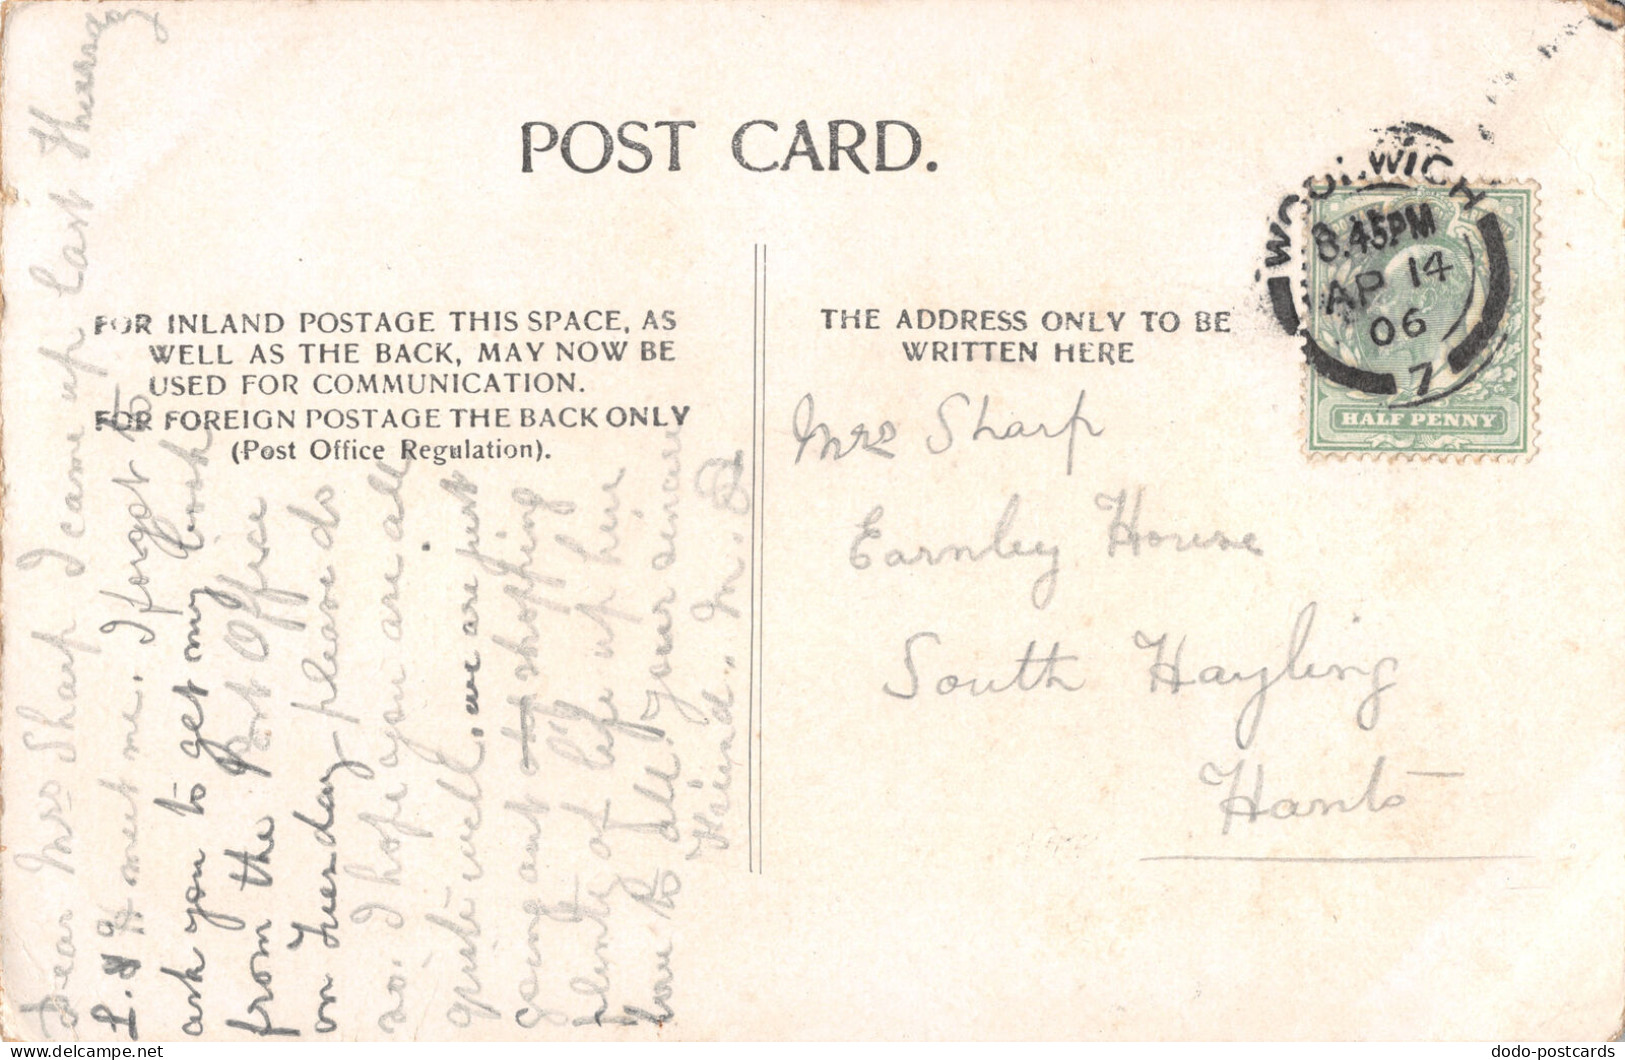 POST CARD.
FOR INLAND POSTAGE THIS SPACE, AS
WELL AS THE BACK, MAY NOW BE
USED FOR COMMUNICATION.
FOR FOREIGN POSTAGE THE BACK ONLY
(Post Office Regulation).
THE ADDRESS ONLY TO BE
WRITTEN HERE
WOOLWICH
8.45PM
AP 14
06
7
HALF PENNY
Mrs Sharp
Earnley House
South Hayling
Hants
Dear Mrs Sharp I came up last
L. & H meet me. I forgot to
ask you to get my book
from the Post Office
on Tuesday please do
so. I hope you are all
quite well, we are just
going out shopping
plenty of life up here
love to all your sincere
Friend. M.
dodo-postcards